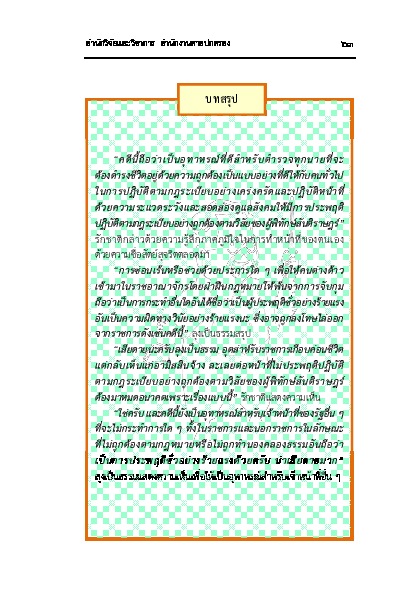 สำนักวิจัยและวิชาการ สำนักงานศาลปกครอง ๒๓
บทสรุป
“คดีนี้ถือว่าเป็นอุทาหรณ์ที่ดีสำหรับตำรวจทุกนายที่จะ
ต้องดำรงชีวิตอยู่ด้วยความถูกต้องเป็นแบบอย่างที่ดีให้กับคนทั่วไป
ในการปฏิบัติตามกฎระเบียบอย่างเคร่งครัดและปฏิบัติหน้าที่
ด้วยความระแวดระวังและสอดส่องดูแลสังคมให้มีการประพฤติ
ปฏิบัติตามกฎระเบียบอย่างถูกต้องตามวินัยของผู้พิทักษ์สันติราษฎร์”
รักชาติกล่าวด้วยความรู้สึกภาคภูมิใจในการทำหน้าที่ของตนเอง
ด้วยความซื่อสัตย์สุจริตตลอดมา
“การซ่อนเร้นหรือช่วยด้วยประการใด ๆ เพื่อให้คนต่างด้าว
เข้ามาในราชอาณาจักรโดยฝ่าฝืนกฎหมายให้พ้นจากการจับกุม
ถือว่าเป็นการกระทำอื่นใดอันได้ชื่อว่าเป็นผู้ประพฤติชั่วอย่างร้ายแรง
อันเป็นความผิดทางวินัยอย่างร้ายแรงนะ ซึ่งอาจถูกลงโทษไล่ออก
จากราชการดังเช่นคดีนี้” ลุงเป็นธรรมสรุป
“เสียดายนะครับลุงเป็นธรรม อุตส่าห์รับราชการเกือบค่อนชีวิต
แต่กลับเห็นแก่อามิสสินจ้าง ละเลยต่อหน้าที่ไม่ประพฤติปฏิบัติ
ตามกฎระเบียบอย่างถูกต้องตามวินัยของผู้พิทักษ์สันติราษฎร์
ต้องมาหมดอนาคตเพราะเรื่องแบบนี้” รักชาติแสดงความเห็น
“ใช่ครับ และคดีนี้ยังเป็นอุทาหรณ์สำหรับเจ้าหน้าที่ของรัฐอื่น ๆ
ที่จะไม่กระทำการใด ๆ ทั้งในราชการและนอกราชการในลักษณะ
ที่ไม่ถูกต้องตามกฎหมายหรือไม่ถูกทำนองคลองธรรมอันถือว่า
เป็นการประพฤติชั่วอย่างร้ายแรงด้วยครับ น่าเสียดายมาก”
ลุงเป็นธรรมแสดงความเห็นเพื่อให้เป็นอุทาหรณ์สำหรับเจ้าหน้าที่อื่น ๆ